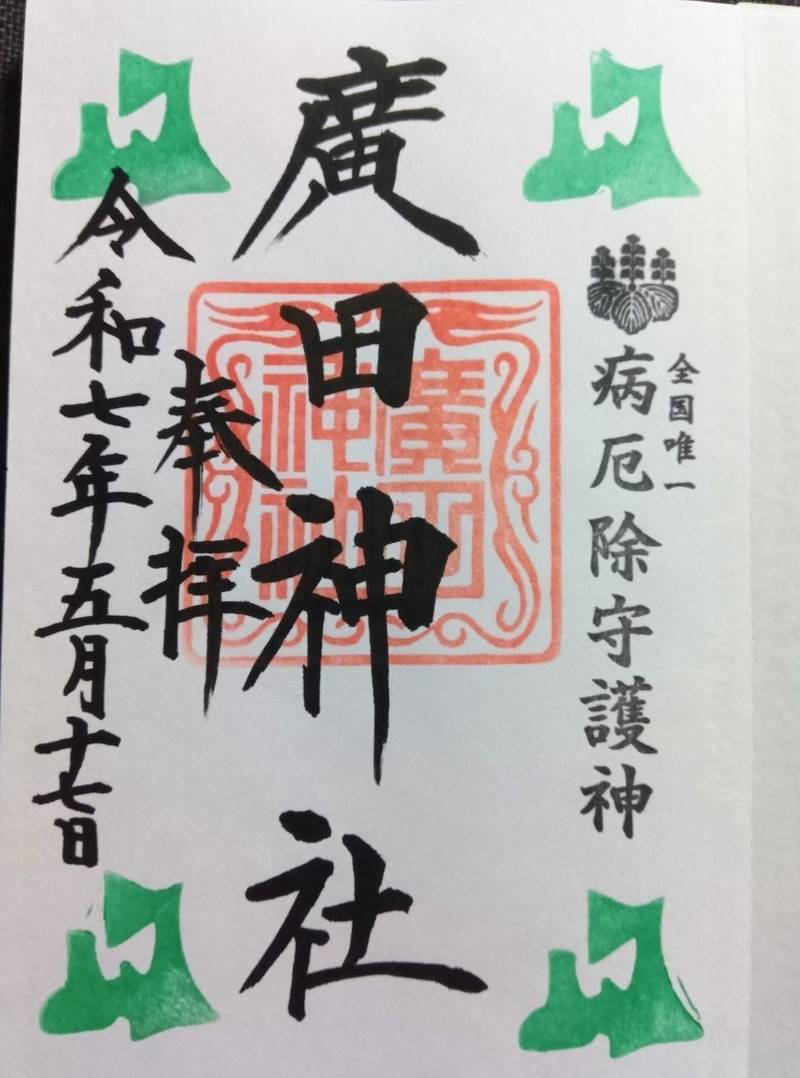 全国唯一
病厄除守護神
廣田神社
廣田
神社
奉拝
令和七年五月十七日